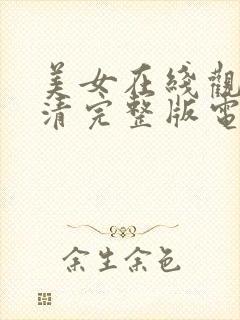 美女在綫觀
清完整版電
余生余色